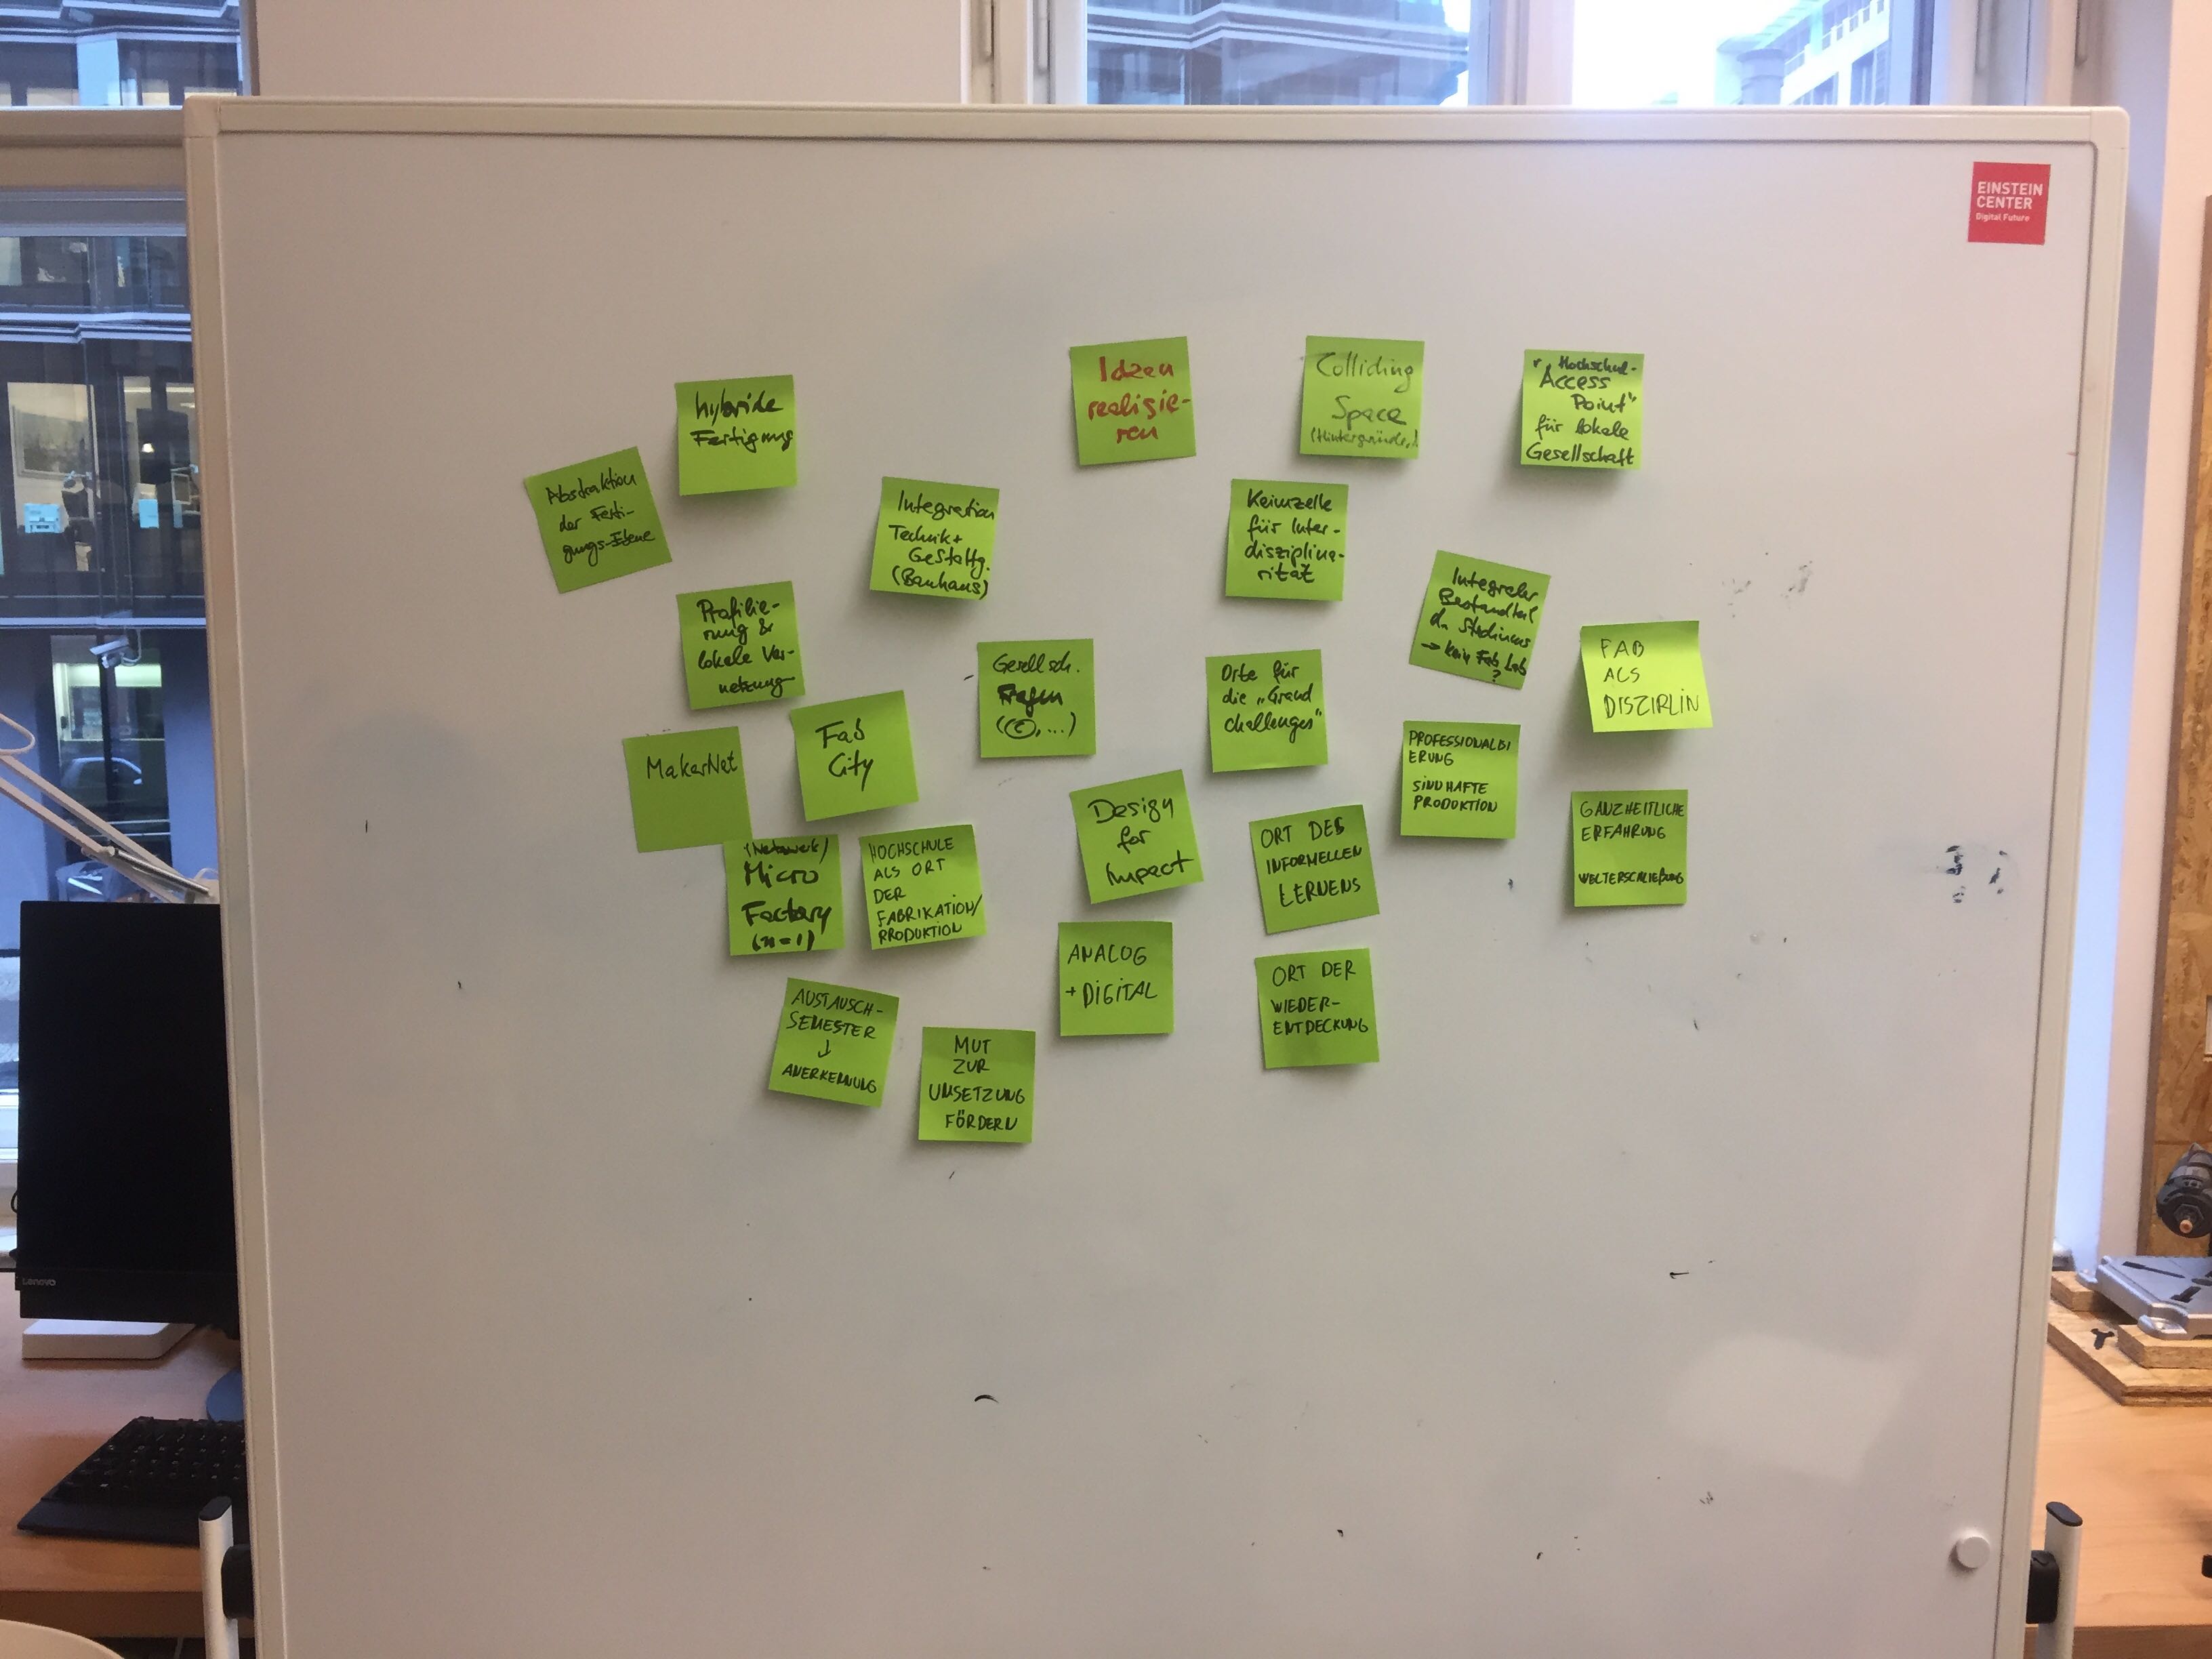 EINSTEIN
CENTER
Digital Future
hybride
Fertigung
Ideen
realisie-
ren
Colliding
Space
(Hintergründe,
Hochschul-
Access
Point"
für lokale
Gesellschaft
Abstraktion
der Ferti-
gungs-Ebene
Integration
Technik+
Gestaltg.
(Bauhaus)
Keimzelle
für Inter-
disziplina-
rität
Integraler
Bestandteil
d. Studiums
→ kein Fab Lab
?
Profilie-
rung &
lokale Ver-
netzung
Gesellsch.
Fragen
(©, ...)
Orte für
die „Grand
Challenges"
FAB
ALS
DISZIPLIN
MakerNet
Fab
City
PROFESSIONALISI
ERUNG
SINNHAFTE
PRODUKTION
Design
for
Impact
ORT DES
INFORMELLEN
LERNENS
GANZHEITLICHE
ERFAHRUNG
WELTERSCHLIEßUNG
(Netzwerk)
Micro
Factory
(n=1)
HOCHSCHULE
ALS ORT
DER
FABRIKATION/
PRODUKTION
ANALOG
+ DIGITAL
ORT DER
WIEDER-
ENTDECKUNG
AUSTAUSCH-
SEMESTER
↓
ANERKENNUNG
MUT
ZUR
UMSETZUNG
FÖRDERN
Lenovo